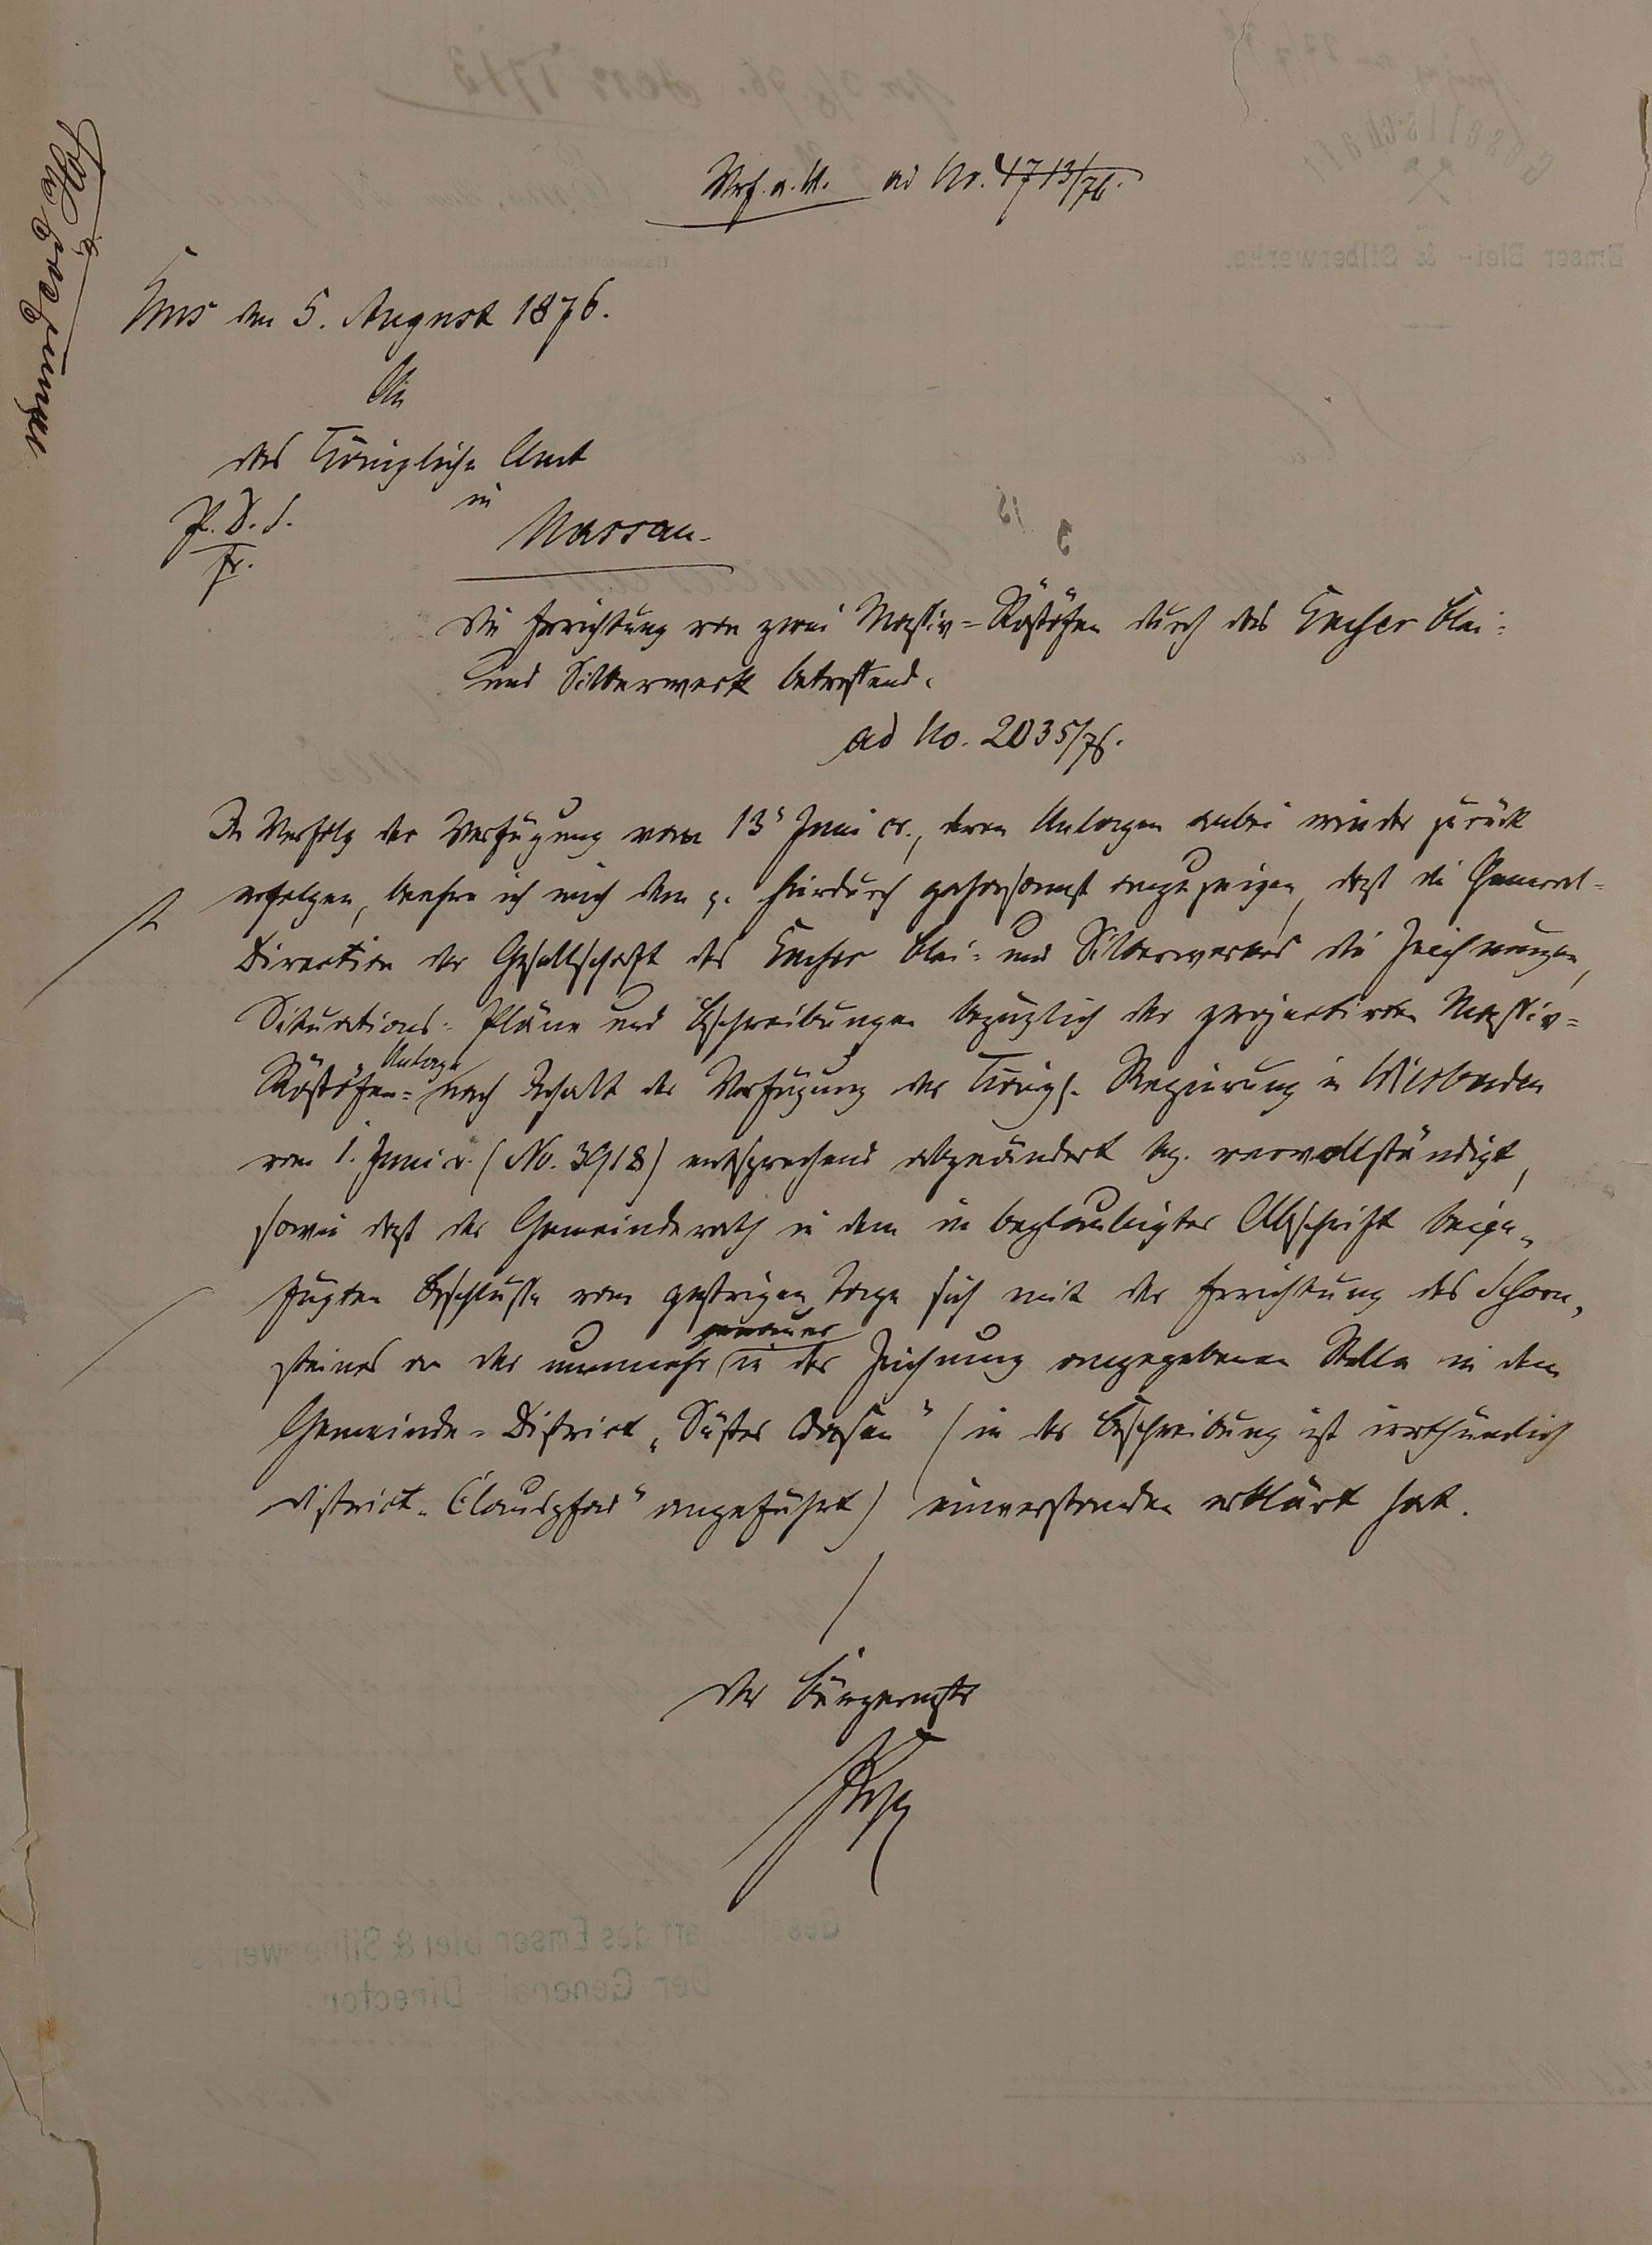 Vrf. a. U. ad No. 4713/76.
Ems den 5. August 1876.
An
das Königliche Amt
in
P. D. S.
fr.
Nassau.
Die Errichtung von zwei Massiv-Röstöfen durch das Emser Blei-
und Silberwerk betreffend.
ad No. 2035/76.
In Verfolg der Verfügung vom 13. Juni cr., deren Anlagen anbei wieder zurück
erfolgen, beehre ich mich dem p. hierdurch gehorsamst anzuzeigen, daß die General-
Direction der Gesellschaft des Emser Blei- und Silberwerkes die Zeichnungen,
Situations-Pläne und Beschreibungen bezüglich der projectirten Massiv-
Anlage
Röstöfen- nach Inhalt der Verfügung der Königl. Regierung in Wiesbaden
vom 1. Juni cr. (No. 3918) entsprechend abgeändert bez. vervollständigt,
sowie daß der Gemeinderath in dem in beglaubigter Abschrift beige-
fügten Beschlusse vom gestrigen Tage sich mit der Errichtung des Schorn-
genauer
steines an der nunmehr in der Zeichnung angegebenen Stelle in dem
Gemeinde-District „ (in der Beschreibung ist irrthümlich
District „Clauspfad" angeführt) einverstanden erklärt hat.
Der Bürgermstr
Gesellschaft des Emser Blei & Silberwerks
Der General-Director.
Gesellschaft
Emser Blei- & Silberwerke.